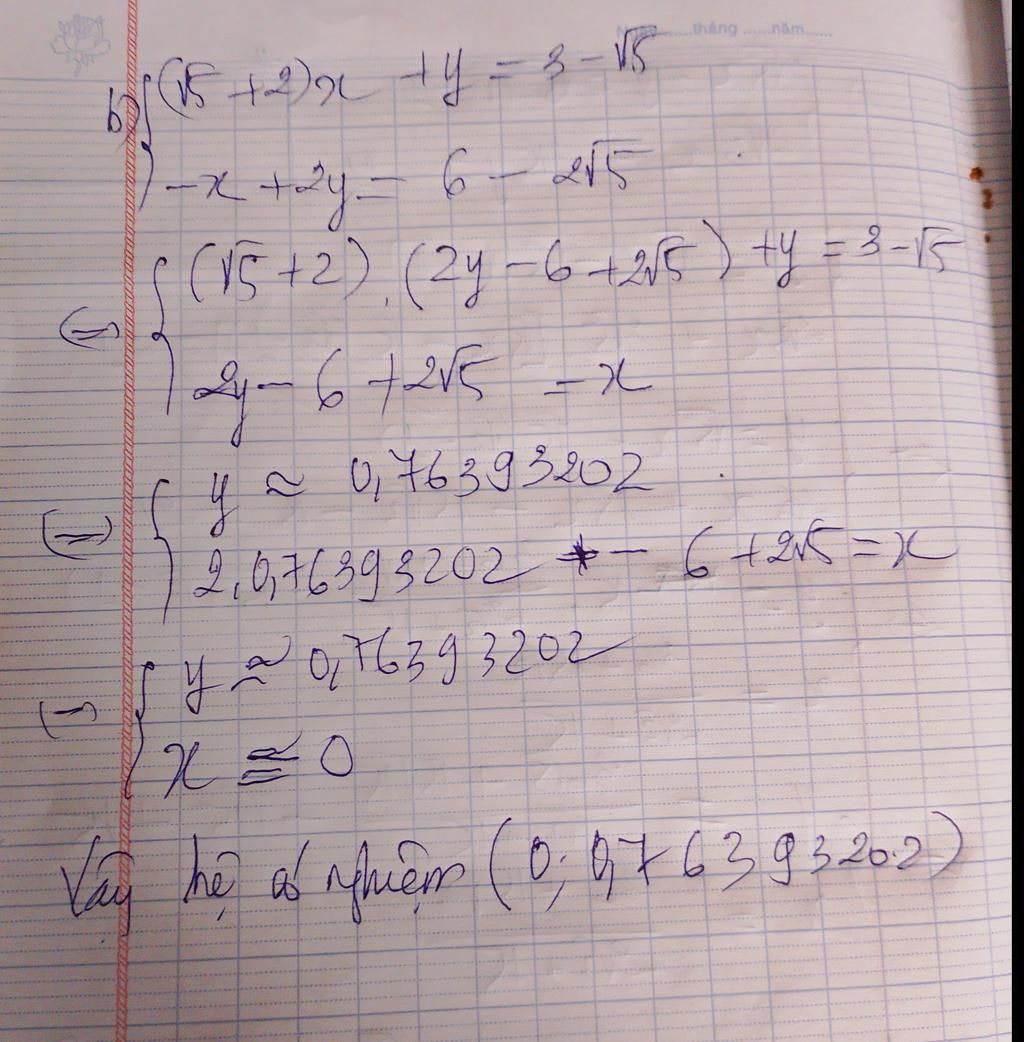 Ngày......tháng......năm......
b) { (√5 + 2)x + y = 3 - √5
-x + 2y = 6 - 2√5
(=) { (√5 + 2).(2y - 6 + 2√5) + y = 3 - √5
2y - 6 + 2√5 = x
(=) { y ≈ 0,76393202
2.0,76393202 - 6 + 2√5 = x
(=) { y ≈ 0,76393202
x ≈ 0
Vậy hệ có nghiệm (0; 0,76393202)